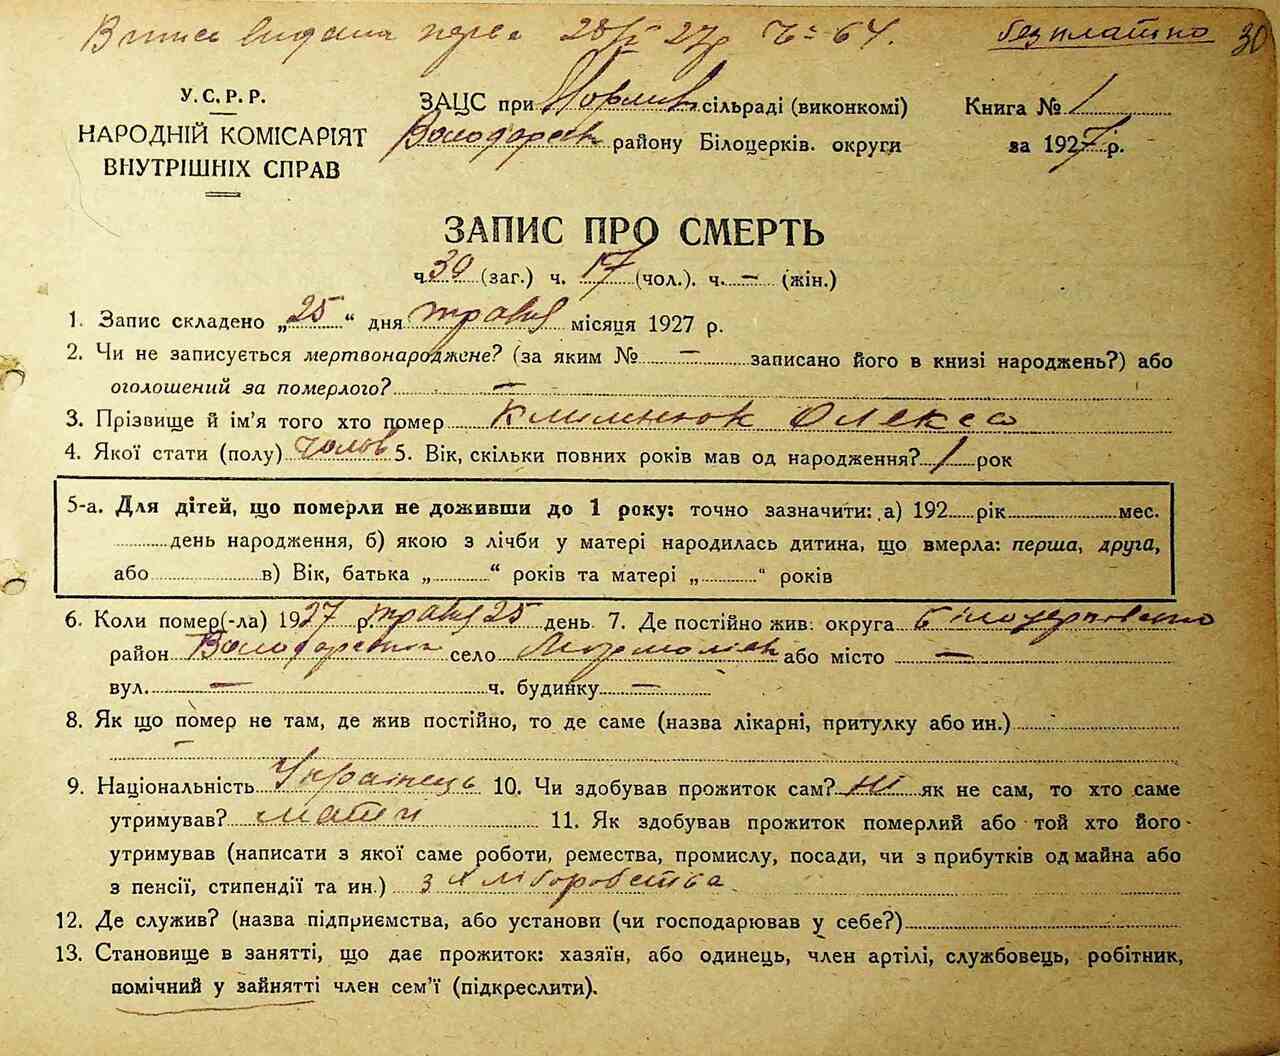 Випис видана перса 28/V 27р № 64. безплатно 30
У.С.Р.Р.
НАРОДНІЙ КОМІСАРІЯТ
ВНУТРІШНІХ СПРАВ
ЗАЦС при сільраді (виконкомі)
Володарськ району Білоцерків. округи
Книга № 1
за 1927 р.
ЗАПИС ПРО СМЕРТЬ
ч. 30 (заг.) ч. 17 (чол.). ч. – (жін.)
1. Запис складено „25“ дня травня місяця 1927 р.
2. Чи не записується мертвонароджене? (за яким № – записано його в книзі народжень?) або
оголошений за померлого? –
3. Прізвище й ім'я того хто помер Клименюк Олекса
4. Якої стати (полу) чолов 5. Вік, скільки повних років мав од народження? 1 рок
5-а. Для дітей, що померли не доживши до 1 року: точно зазначити: а) 192 рік мес.
день народження, б) якою з лічби у матері народилась дитина, що вмерла: перша, друга,
або в) Вік, батька „ “ років та матері „ “ років
6. Коли помер(-ла) 1927 р травня 25 день. 7. Де постійно жив: округа Білоцерковська
район Володарський село або місто –
вул. – ч. будинку –
8. Як що помер не там, де жив постійно, то де саме (назва лікарні, притулку або ин.)
–
9. Національність Українець 10. Чи здобував прожиток сам? ні як не сам, то хто саме
утримував? мати 11. Як здобував прожиток померлий або той хто його
утримував (написати з якої саме роботи, ремества, промислу, посади, чи з прибутків од майна або
з пенсії, стипендії та ин.) з хліборобства
12. Де служив? (назва підприємства, або установи (чи господарював у себе?)
13. Становище в занятті, що дає прожиток: хазяїн, або одинець, член артілі, службовець, робітник,
помічний у зайнятті член сем'ї (підкреслити).